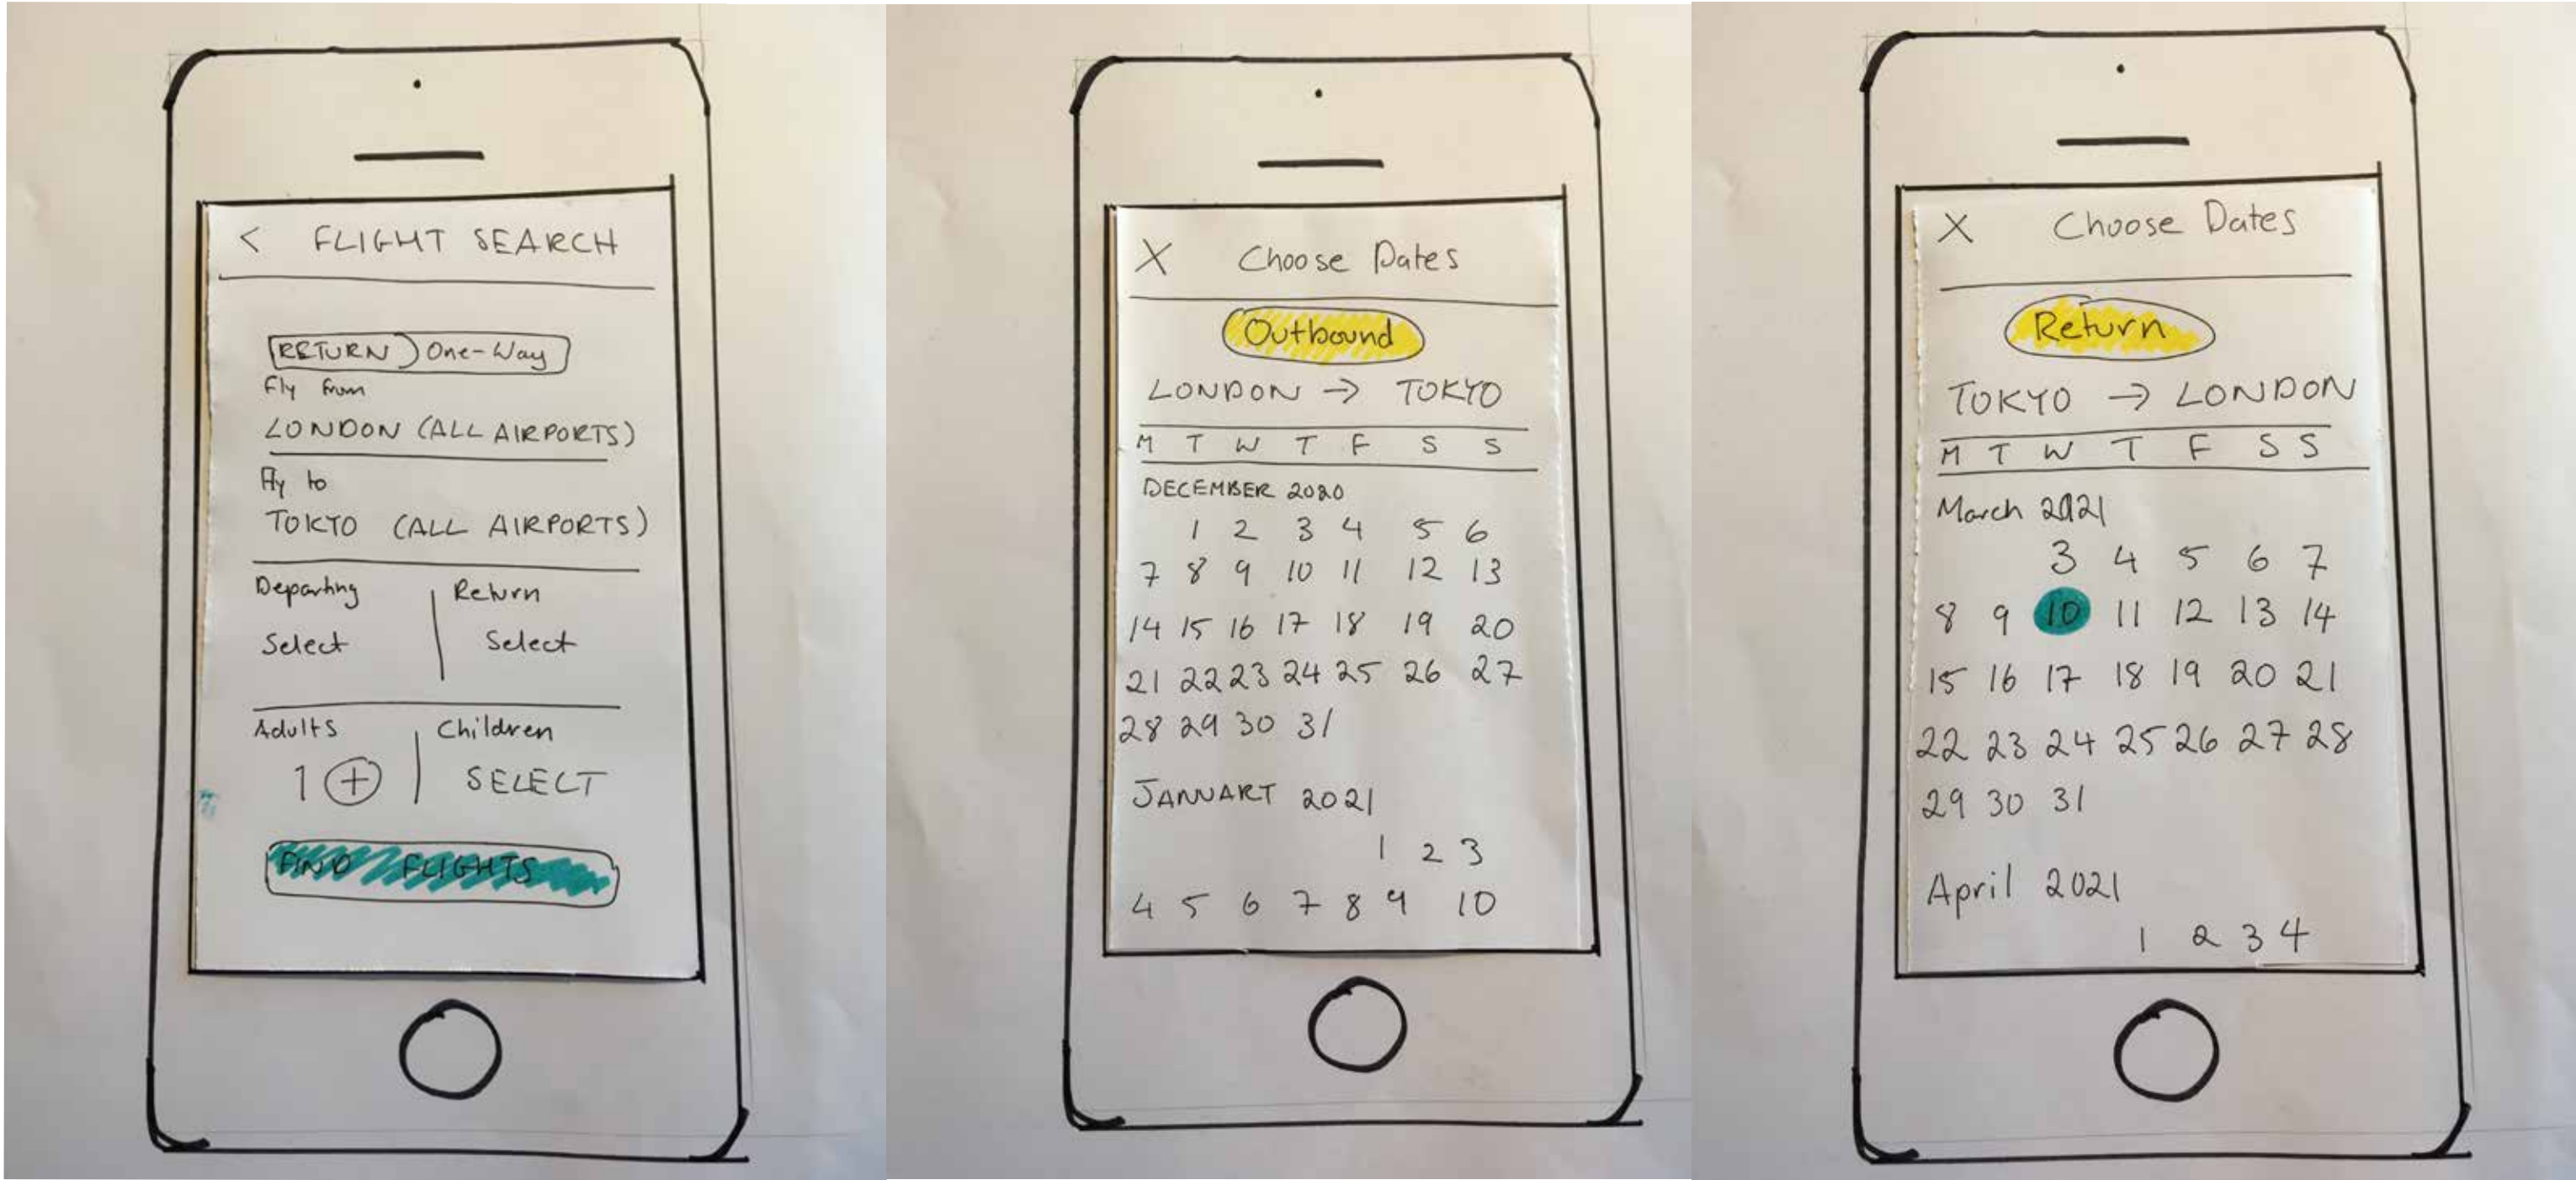 < FLIGHT SEARCH
RETURN One-Way
Fly from
LONDON (ALL AIRPORTS)
Fly to
TOKYO (ALL AIRPORTS)
Departing Return
Select Select
Adults Children
1 + SELECT
FIND FLIGHTS
X Choose Dates
Outbound
LONDON → TOKYO
M T W T F S S
DECEMBER 2020
1 2 3 4 5 6
7 8 9 10 11 12 13
14 15 16 17 18 19 20
21 22 23 24 25 26 27
28 29 30 31
JANUARY 2021
1 2 3
4 5 6 7 8 9 10
X Choose Dates
Return
TOKYO → LONDON
M T W T F S S
March 2021
3 4 5 6 7
8 9 10 11 12 13 14
15 16 17 18 19 20 21
22 23 24 25 26 27 28
29 30 31
April 2021
1 2 3 4